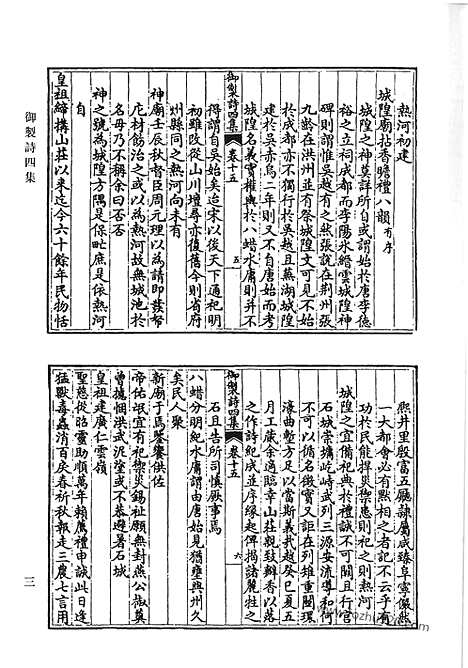 熱河初建
城隍廟拈香瞻禮八韻有序
城隍之神莫詳所自或謂始於唐李德
裕之立祠成都而李陽氷縉雲城隍神
碑則謂惟吳越有之然張說在荆州張
九齡在洪州並有祭城隍文可見不始
於成都亦不獨行於吳越且蕪湖城隍
建於吳赤烏二年則又不自唐始而考
城隍名義實權輿於八蜡水庸則并不
御製詩四集 卷十五 五
得謂自吳始矣迨宋以後天下通祀明
初雖改從山川壇尋亦復舊今則省府
州縣同之熱河向未有
神廟壬辰秋督臣周元理以為請即發帑
庀材飭治之或以為熱河故無城池於
名毋乃不稱余曰否否
神之號為城隍方隅是保毗庶是依熱河
自
皇祖締搆山莊以來迄今六十餘年民物恬
熙井里殷富五廳隷屬咸臻阜寧儼然
一大都會必有黙相之者記不云乎有
功於民能捍災禦患則祀之則熱河
城隍之宜備祀典於禮誠不可闕且行宮
石城崇墉屹峙武列三源安流導和何
不可以備名徵實又詎在列雉重闉環
濠曲塹方足以當斯義哉越癸巳夏五
月工蕆余適臨幸山莊親致瓣香以落
之作詩紀成並序緣起俾揭諸麗牲之
御製詩四集 卷十五 六
石且告所司慎厥事焉
八蜡分明紀水庸謂由唐始見猶壅與州久
矣民人聚
新廟于焉饗薦供佐
帝佑氓宜有祀禦災錫祉願無封燕公㣲奠
曾攄悃洪武泥塗或不恭避暑石城
皇祖建廣仁雲嶺
聖慈從昭靈助順萬年賴薦禮申誠此日逢
猛獸毒蟲消百戾春祈秋報走三農七言用
御製詩四集
三